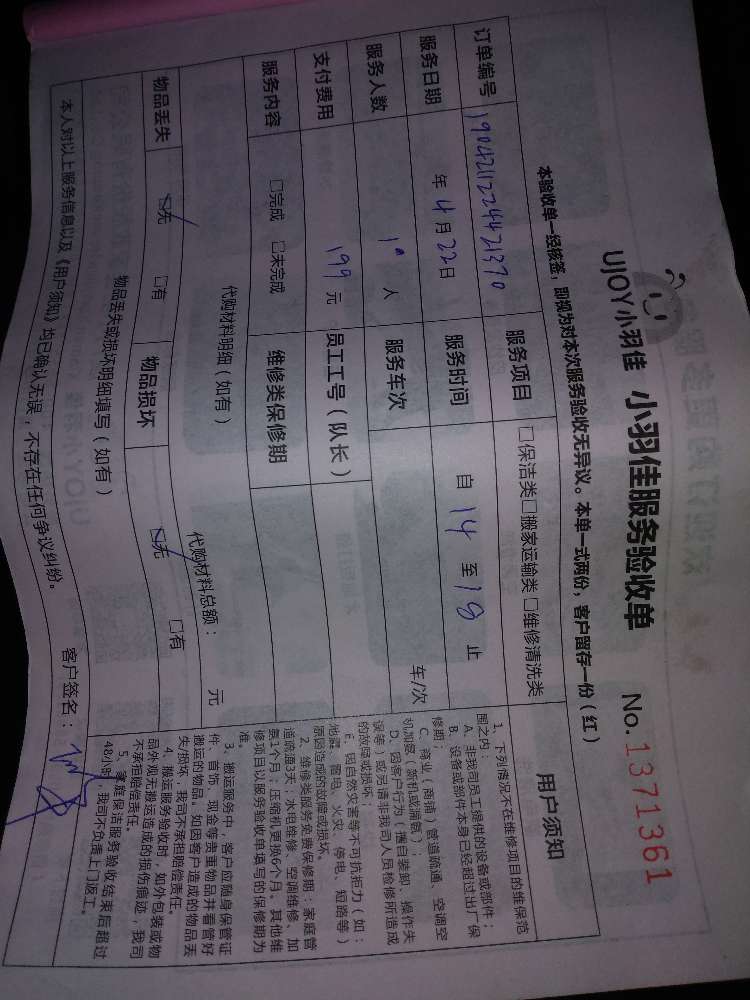 UJOY小羽佳 小羽佳服务验收单 No.1371361
本验收单一经核签,即视为对本次服务验收无异议。本单一式两份,客户留存一份(红)
订单编号 19042112244421370 服务项目 □保洁类□搬家运输类□维修清洗类
服务日期 年4月22日 服务时间 自 14 至 18 止
服务人数 1 人 服务车次 车/次
支付费用 199 元 员工工号(队长)
服务内容 □完成 □未完成 维修类保修期
代购材料明细(如有) 代购材料总额: 元
物品丢失 □无 □有 物品损坏 □无 □有
物品丢失或损坏明细填写(如有)
本人对以上服务信息以及《用户须知》均已确认无误,不存在任何争议纠纷。
客户签名:
用户须知
1、下列情况不在维修项目的维保范
围之内:
A. 非我司员工提供的设备或部件;
B. 设备或部件本身已经超过出厂保
修期;
C. 商业(商铺)管道疏通、空调空
机加氨(新机或漏氨);
D. 因客户行为(擅自装卸、操作失
误等)或另请非我司人员检修所造成
的故障或损坏;
E. 因自然灾害等不可抗拒力(如:
地震、雷电、火灾、停电、短路等)
原因造成的故障或损坏。
2、维修类服务免费保修期:家庭管
道疏通3天;水电维修、空调维修、加
氨1个月;压缩机更换6个月。其他维
修项目以服务验收单填写的保修期为
准。
3、搬运服务中,客户应随身保管证
件、首饰、现金等贵重物品并看管好
搬运的物品。如因客户造成的物品丢
失/损坏,我司不承担赔偿责任。
4、搬运服务验收时,如外包装或物
品外观无搬运造成的损伤痕迹,我司
不承担赔偿责任。
5、家庭保洁服务验收结束后超过
48小时,我司不负责上门返工。